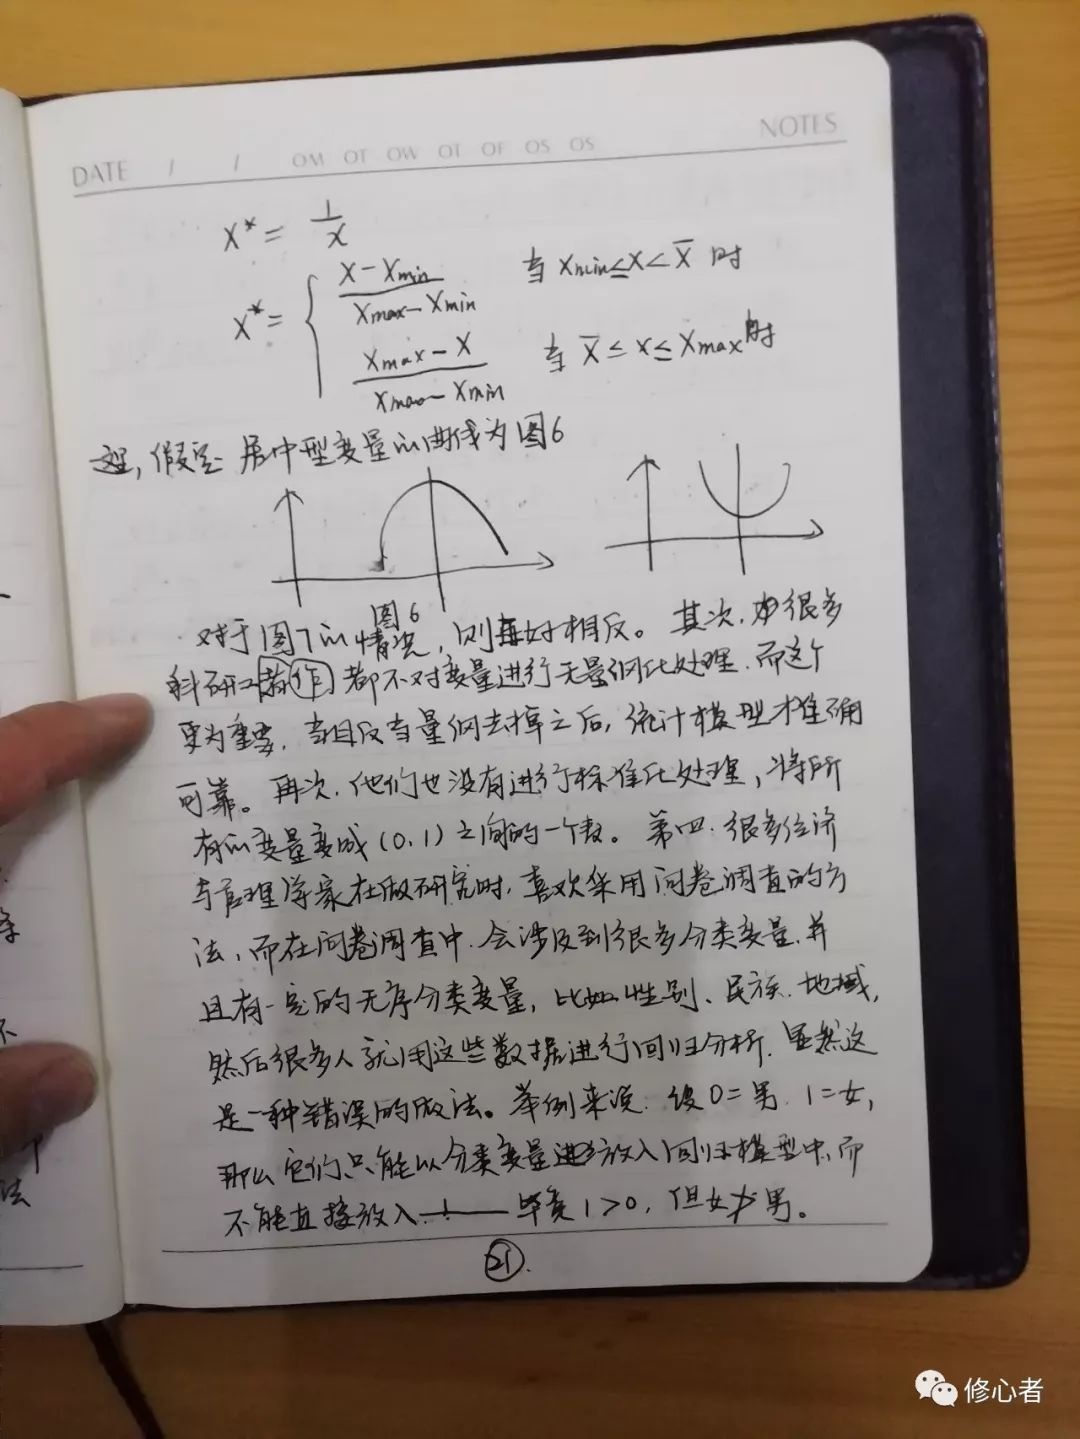 DATE / / OM OT OW OT OF OS OS NOTES
X* = 1/X
X* = { (X - Xmin)/(Xmax - Xmin) 当 Xmin ≤ X < X̄ 时
(Xmax - X)/(Xmax - Xmin) 当 X̄ ≤ X ≤ Xmax 时
这里,假定居中型变量的曲线为图6
图6
对于图7的情况,则正好相反。其次,很多
科研工作 都不对变量进行无量纲化处理,而这个
更为重要,当量纲去掉之后,统计模型才准确
可靠。再次,他们也没有进行标准化处理,将所
有的变量变成(0,1)之间的一个数。第四,很多经济
与管理学家在做研究时,喜欢采用问卷调查的方
法,而在问卷调查中,会涉及到很多分类变量,并
且有一定的无序分类变量,比如性别、民族、地域,
然后很多人就用这些数据进行回归分析,显然这
是一种错误的做法。举例来说,设0=男,1=女,
那么它们只能以分类变量进放入回归模型中,而
不能直接放入——毕竟1>0,但女≯男。
21.
修心者